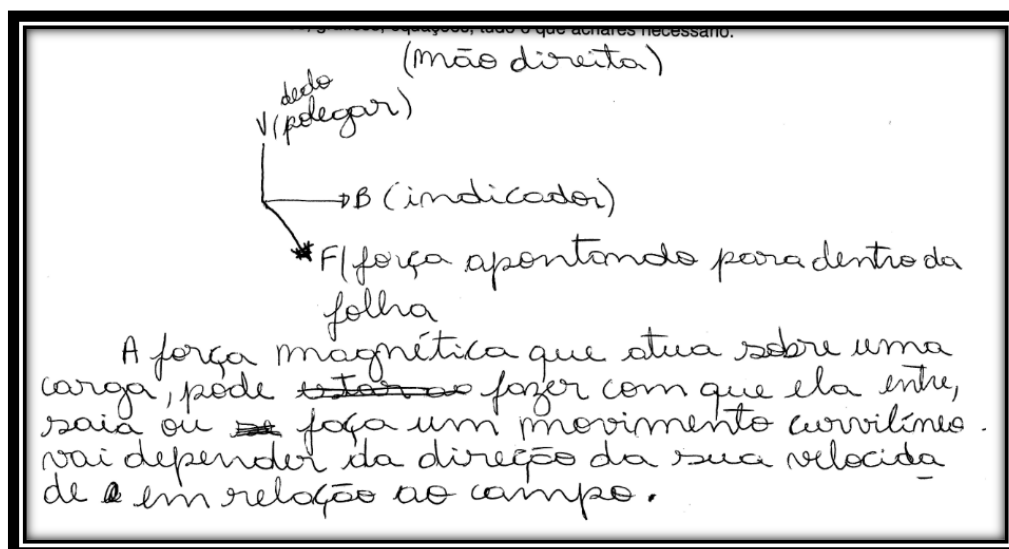 gráficos, equações, tudo o que achares necessário.
(mão direita)
dedo
V (polegar)
B (indicador)
F/ força apontando para dentro da
folha
A força magnética que atua sobre uma
carga, pode fazer com que ela entre,
saia ou faça um movimento curvilíneo.
vai depender da direção da sua velocida
de em relação ao campo.